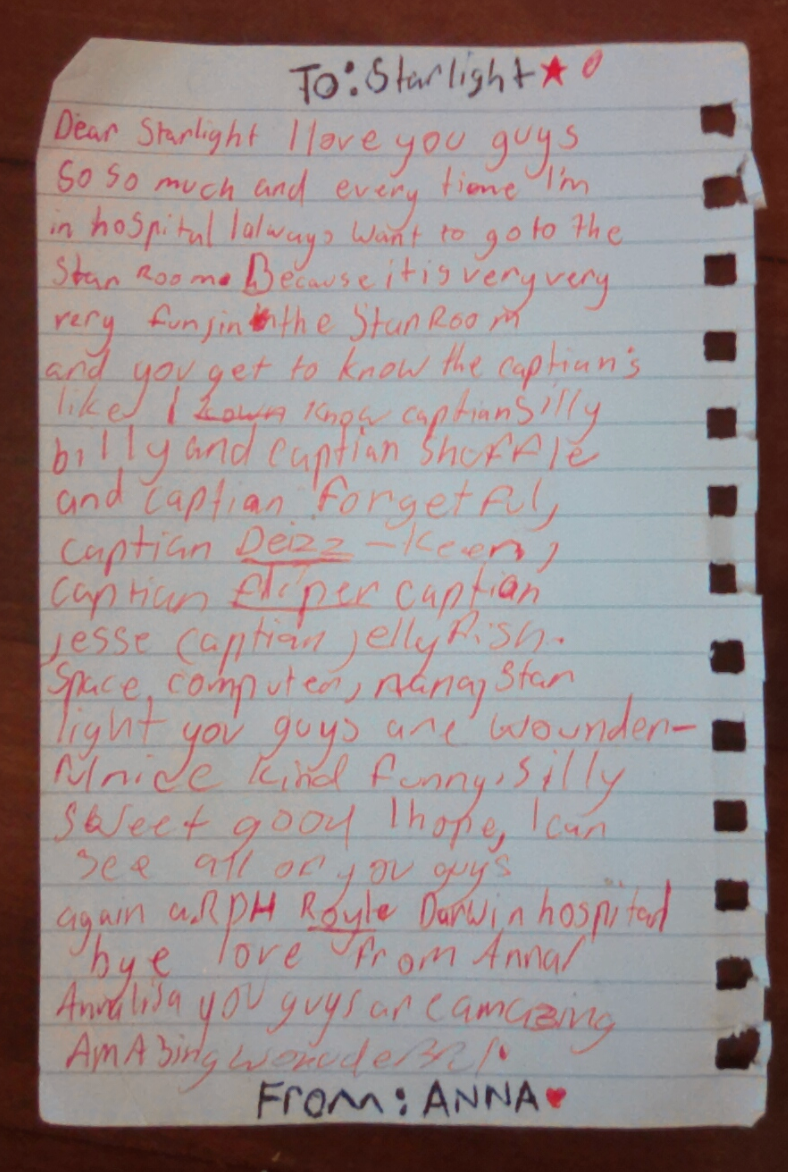 To: Starlight
Dear Starlight I love you guys
So so much and every time I'm
in hospital I always want to go to the
Star Room. Because it is very very
very fun, in the Star Room
and you get to know the captian's
like I kown know captian Silly
billy and captian Shuffle
and captian forgetful,
captian Deizz-Keen,
captian fliper captian
jesse captian jelly fish.
Space, computer, nana, Star
light you guys are wounder-
ful nice kind funny, silly
sweet good I hope, I can
see all of you guys
again a.RDH Royle Darwin hospital
bye love from Anna/
Annalisa you guys are amazing
AmAzing
From: ANNA